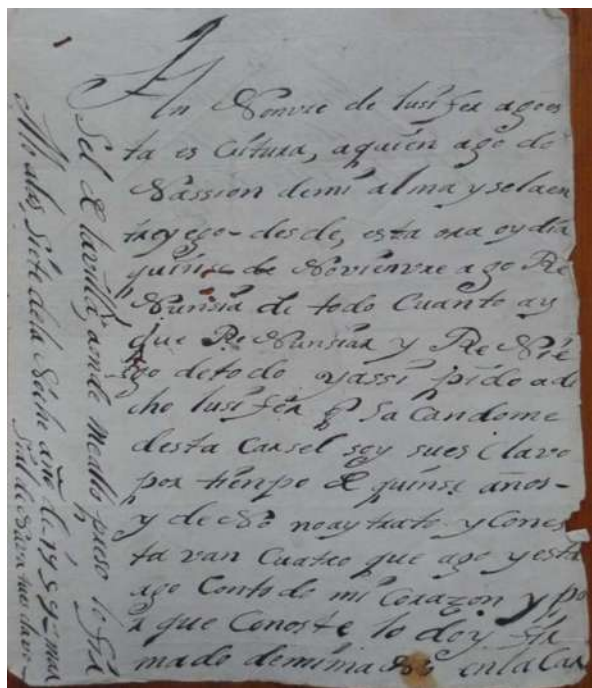 En Nonvre de lusifer agoes
ta es Critura, aquien ago do
Nassion demi alma y selaen
treyego- desde, esta ora oy dia
quinse de Novienvre ago Re
Nunsia de todo Cuanto ay
que ReNunsiar y ReNie
go detodo yassi pido adi
cho lusifer q Sacandome
desta Carsel soy sues Clavo
por tienpo de quinse años-
y de No noay trato y Cones
ta van Cuatro que ago yesta
ago Contodo mi Corazon y po
r que Conoste lo doy fir
mado demimano en la Car
sel de lavilla, ande medllo preso lo fir
Mo alas Siete dela Noche año de 1757- mea